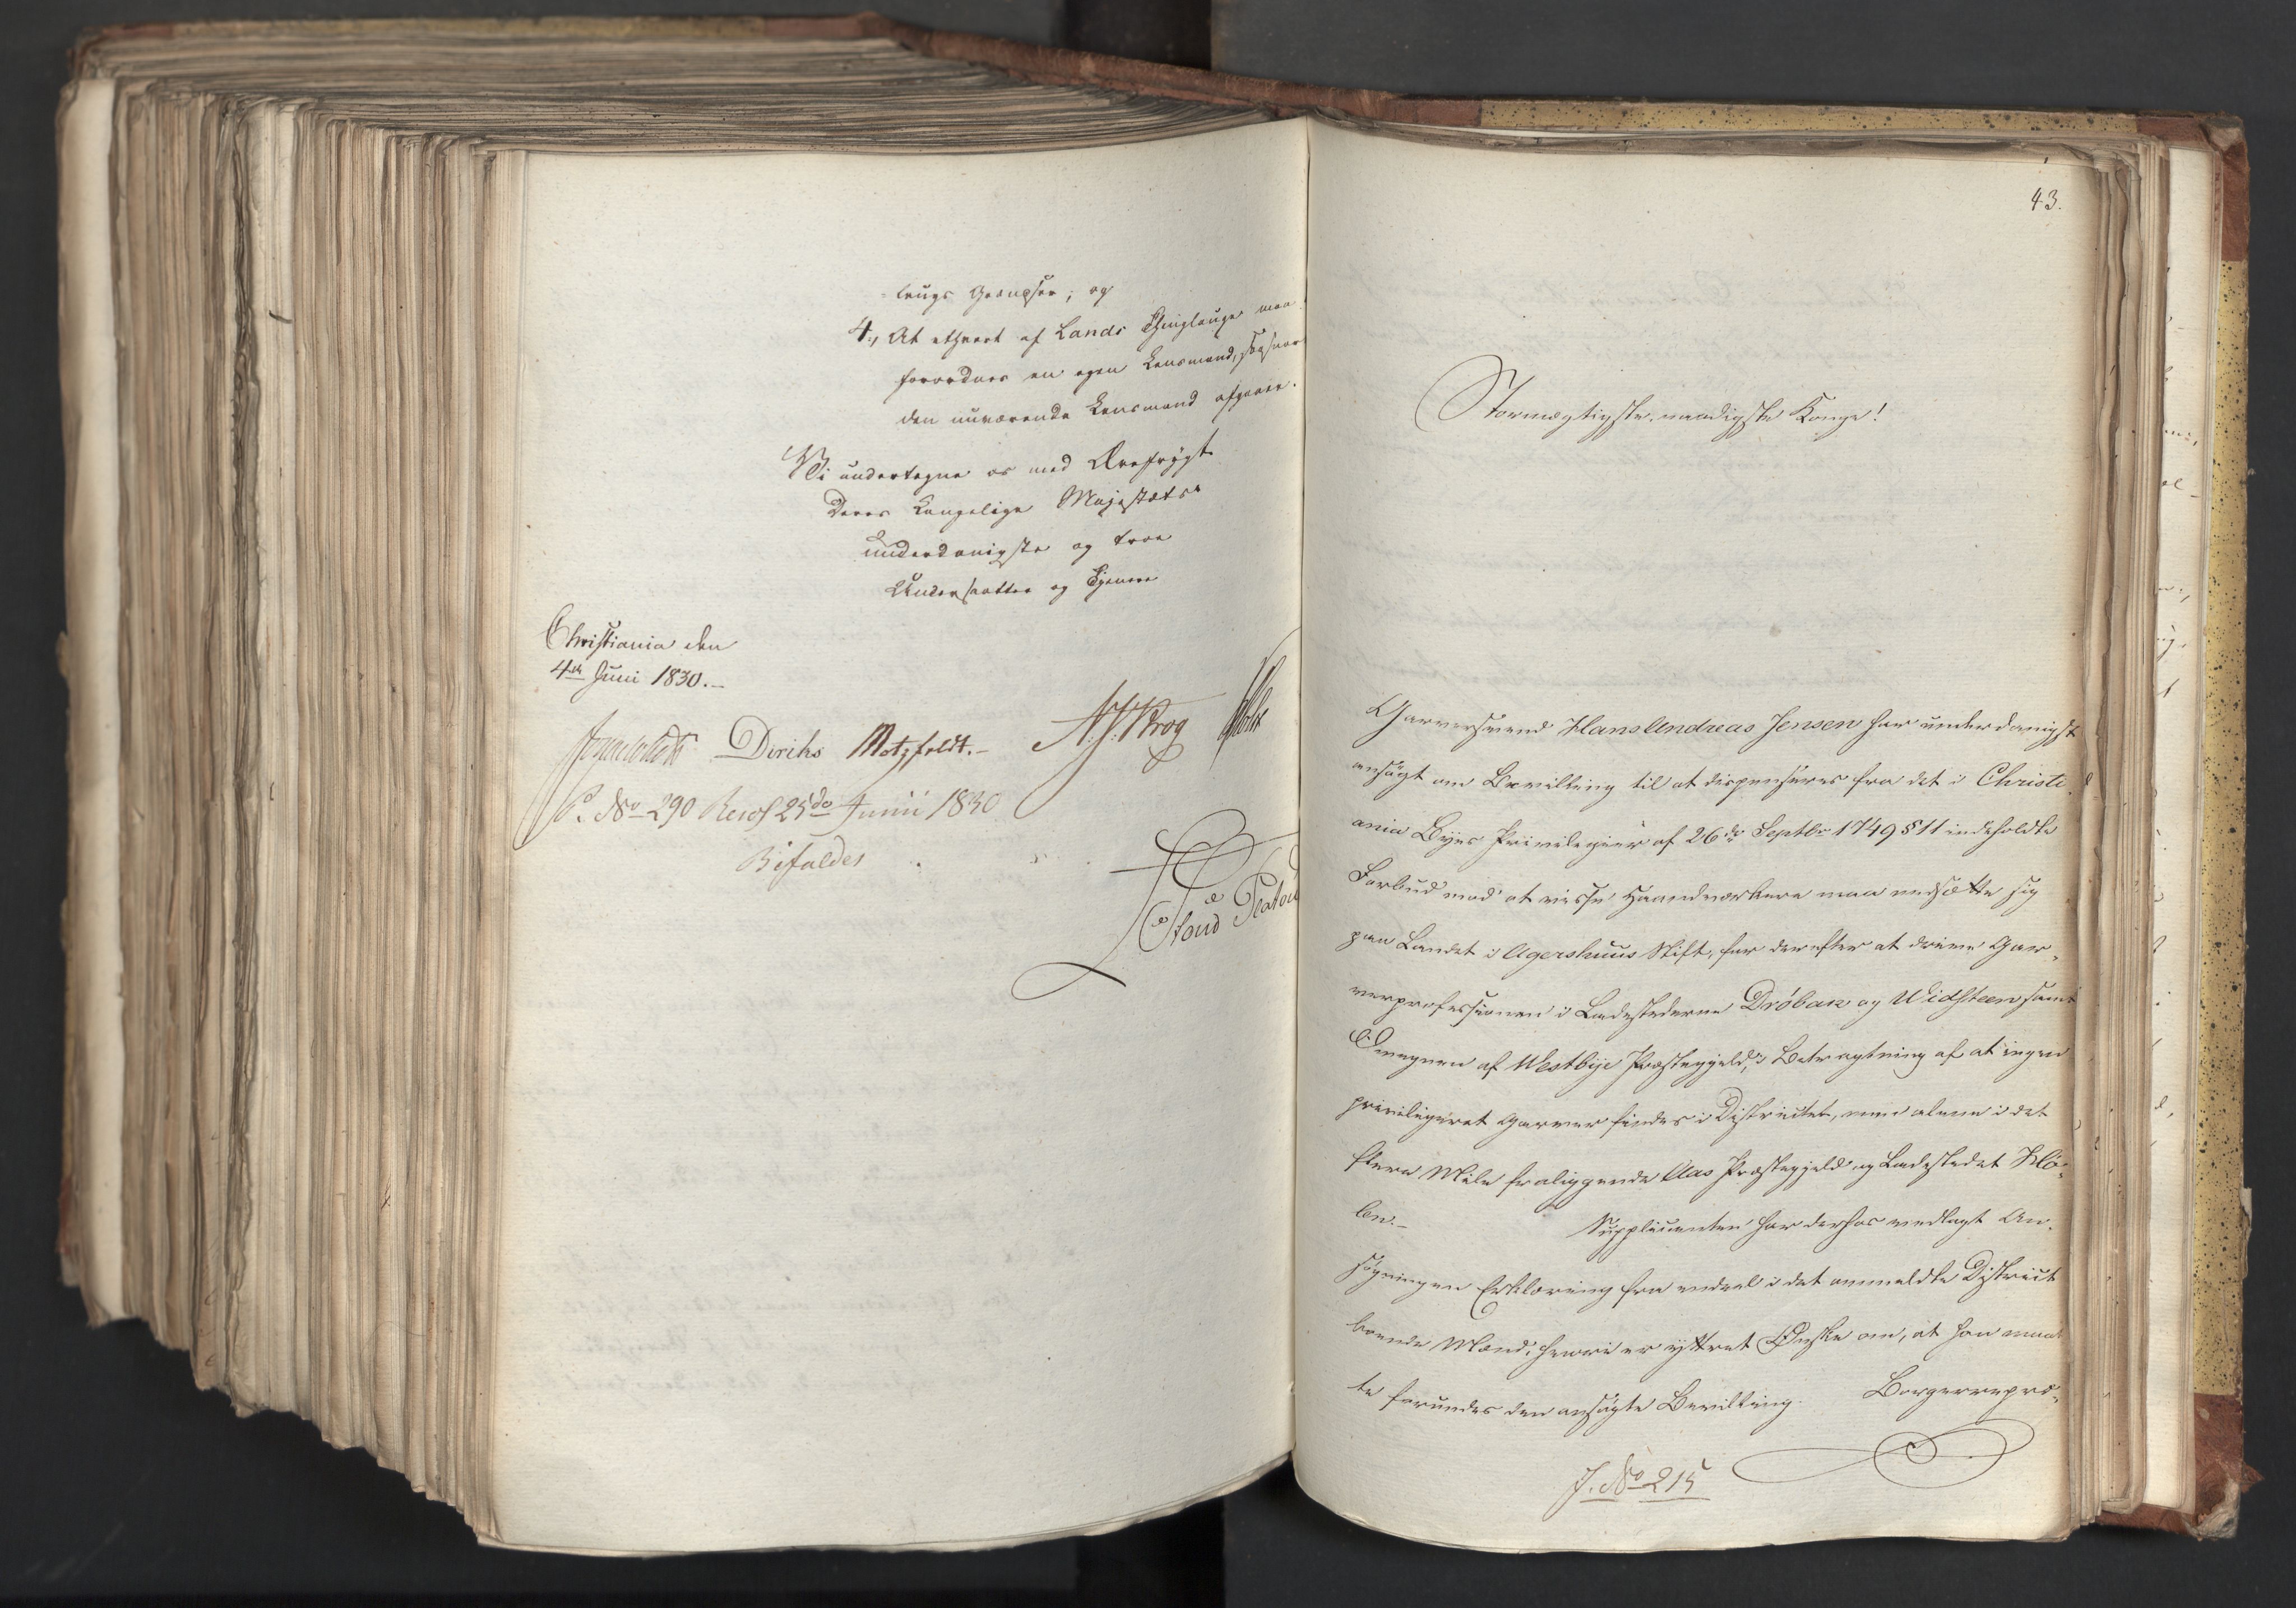 laugs Grændser; og
4., At ethvert af Lands Thinglauge maa
forordnes en egen Lensmand, saasnart
den nuværende Lensmand afgaaer.
Vi undertegne os med Ærefrygt
Deres Kongelige Majestæts
underdanigste og troe
Undersaatter og Tjenere
Christiania den
4de Juni 1830.-
Diriks Motzfeldt.- N. J. Krog Holst
P. No 290 Resol 25de Junii 1830
Bifaldes
Stoud Platou
43.
Stormægtigste, naadigste Konge!
Garversvend Hans Andreas Jensen har underdanigst
ansøgt om Bevilling til at dispenseres fra det i Christi-
ania Byes Privilegier af 26de Septbr 1749 § 11 indeholdte
Forbud mod at visse Haandværkere maa nedsætte sig
paa Landet i Agershuus Stift, for derefter at drive Gar-
verprofessionen i Ladestederne Dröbak og Hvidsteen samt
Omegnen af Westbye Præstegjeld, i Betragtning af at ingen
privilegeret Garver findes i Districtet, men alene i det
flere Mile fraliggende Aas Præstegjeld og Ladestedet Hö-
len.- Supplicanten har derhos vedlagt An-
søgningen Erklæring fra endeel i det ommeldte District
boende Mænd, hvori er yttret Ønske om, at han maat-
te forundes den ansøgte Bevilling. Borgerrepræ-
J. No 215